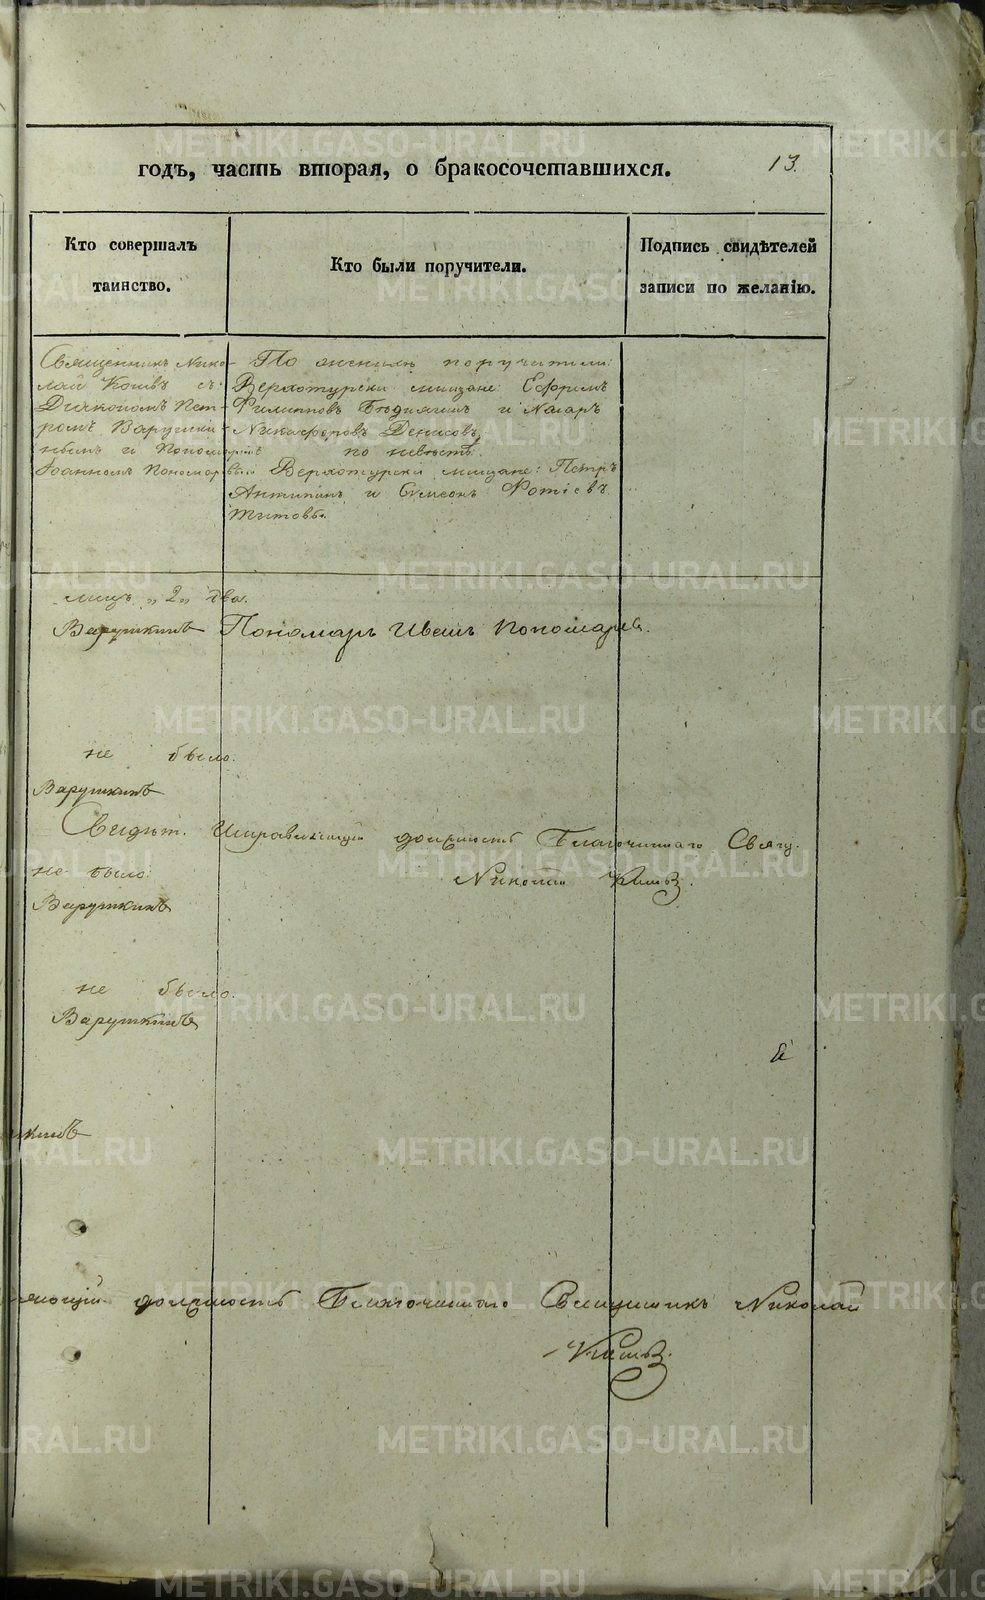 годъ, часть вторая, о бракосочетавшихся. 13.
Кто совершалъ
таинство.
Кто были поручители.
Подпись свидѣтелей
записи по желанію.
Священникъ Нико-
лай съ
Діакономъ Пет-
ромъ Варушки-
нымъ и Пономаремъ
Іоанномъ Пономаревымъ
По женихѣ поручители:
Верхотурскіи мѣщане: Ефремъ
Филипповъ и Назаръ
Никифоровъ Денисовъ,
по невѣстѣ.
Верхотурскіи мѣщане: Петръ
Антипинъ и Симеонъ
Титовъ.
лицъ „2„ два.
Варушкинъ Пономарь Иванъ Пономаревъ.
не было.
Варушкинъ
Свидѣт. Исправляющій должность Благочиннаго Свящ.
Николай
не было.
Варушкинъ
не было.
Варушкинъ
должность Благочиннаго Священникъ Николай
METRIKI.GASO-URAL.RU